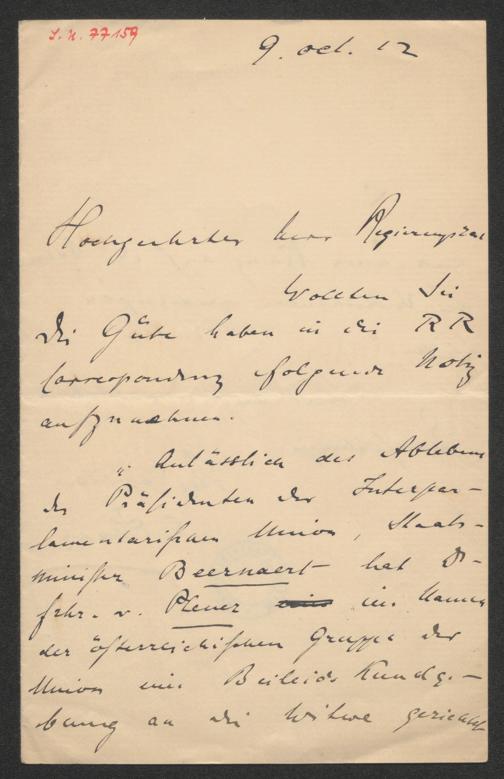 I. N. 77159
9. oct. 12
Hochgeehrter Herr Regierungsrat
Wollten Sie
die Güte haben in die RR
Correspondenz folgende Notiz
aufzunehmen.
„ Anlässlich des Ablebens
des Präsidenten der Interpar-
lamentarischen Union, Staats-
minister Beernaert hat Dr
Frhr. v. Plener im Namen
der österreichischen Gruppe der
Union eine Beileids Kundge-
bung an die Witwe gerichtet